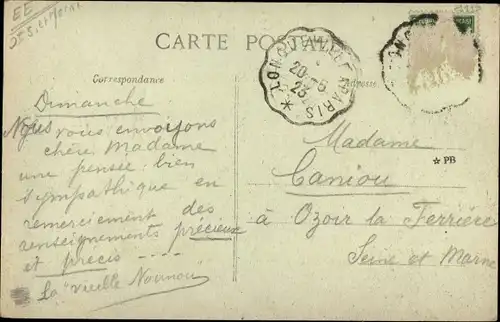 EE
CARTE POSTALE
Correspondance
Adresse
LONGUEVILLE A PARIS
20-5
23
LONGUE
Dimanche
Nous vous envoyons
chère Madame
une pensée bien
sympathique en
remerciement des
renseignements précieux
et précis ----
La "vieille Nounou"
Madame
Caniou
à Ozoir la Ferrière
Seine et Marne
☆ PB